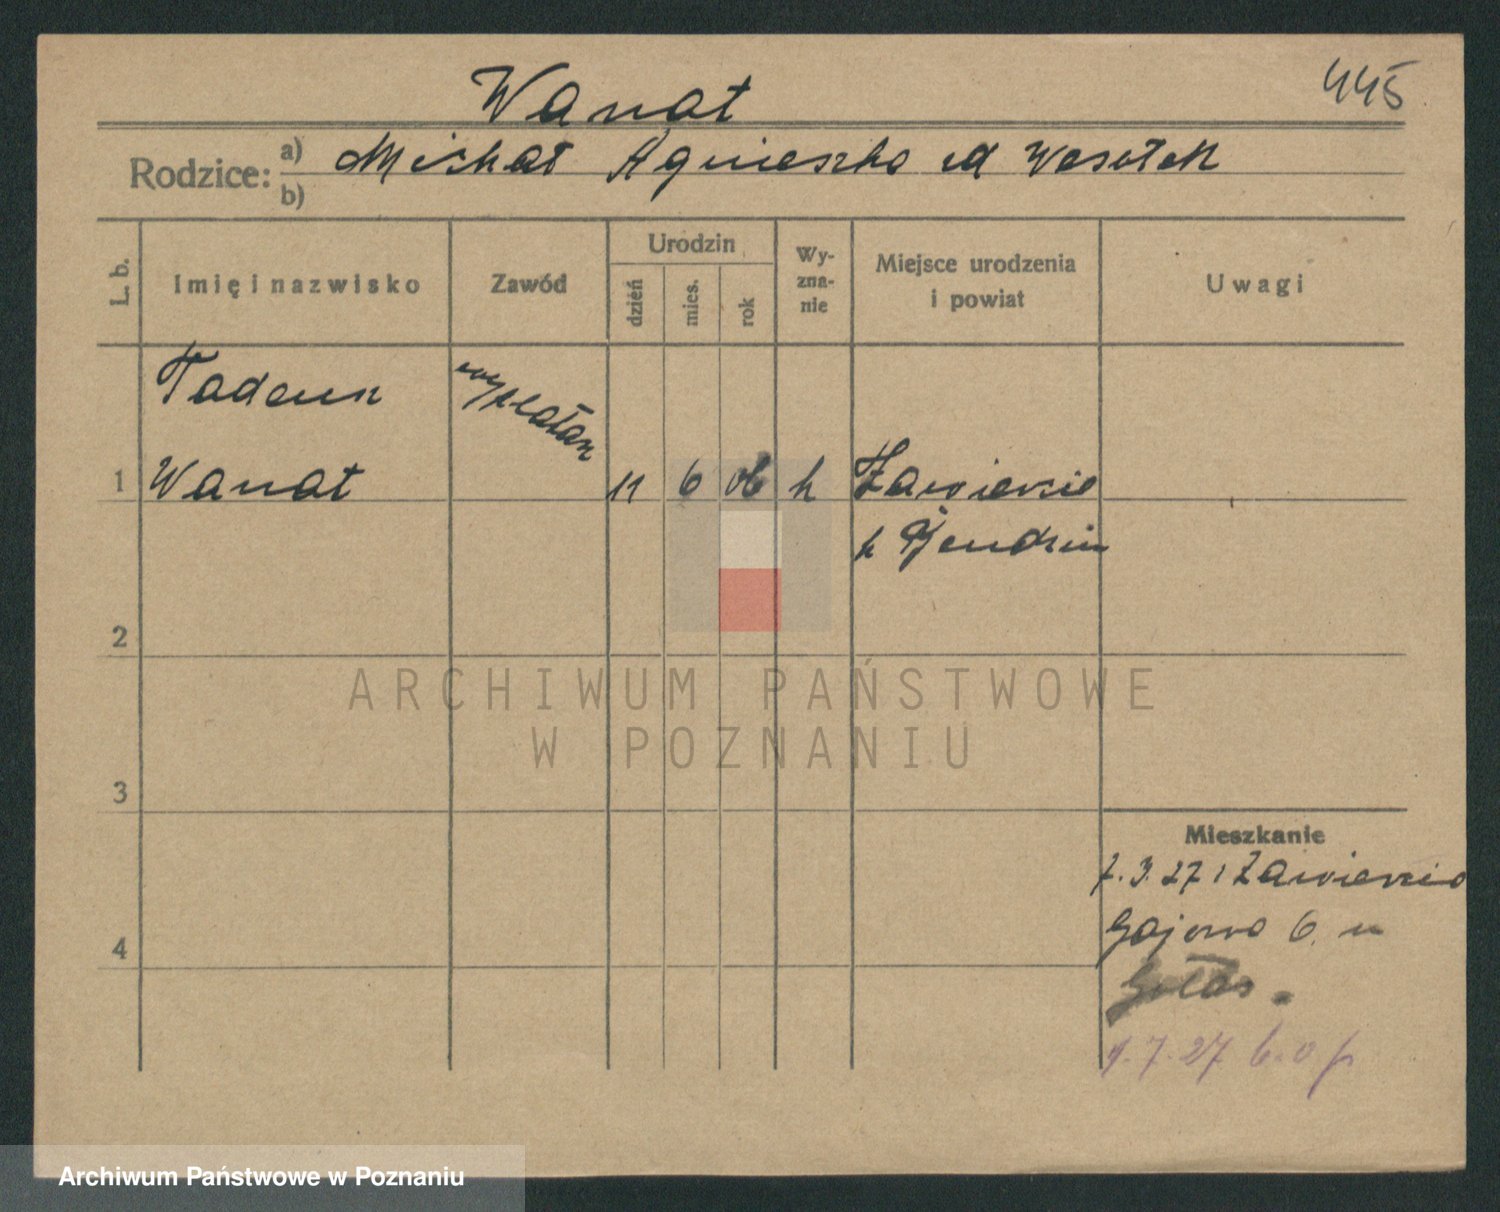 Wanat
445
Rodzice: a) Michał Agnieszka zd Wesołek
b)
L. b.
Imię i nazwisko
Zawód
Urodzin
dzień
mies.
rok
Wy-
zna-
nie
Miejsce urodzenia
i powiat
Uwagi
Tadeusz
1 Wanat
11 6 06 k Zawiercie
p Bendzin
2
ARCHIWUM PAŃSTWOWE
W POZNANIU
3
Mieszkanie
7.3.27 z Zawiercia
Gajowa 6. u
4
1.7.27 b.o p
Archiwum Państwowe w Poznaniu